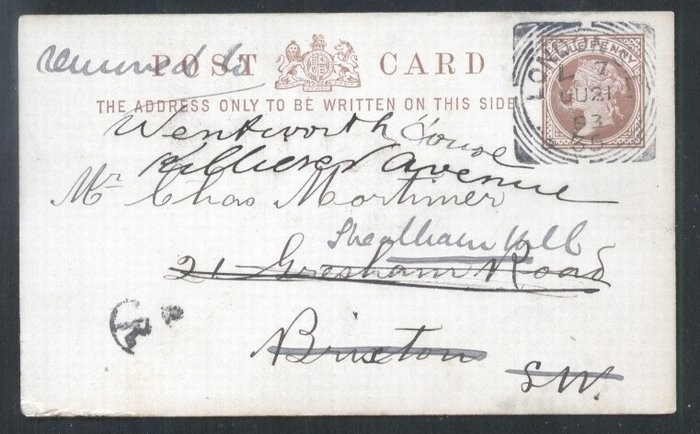 removed to
POST CARD
HALFPENNY
THE ADDRESS ONLY TO BE WRITTEN ON THIS SIDE
LONDON
L 7
JU 21
83
Wentworth House
Avenue
Mr Chas Mortimer
21 Gresham Road
Brixton
S.W.